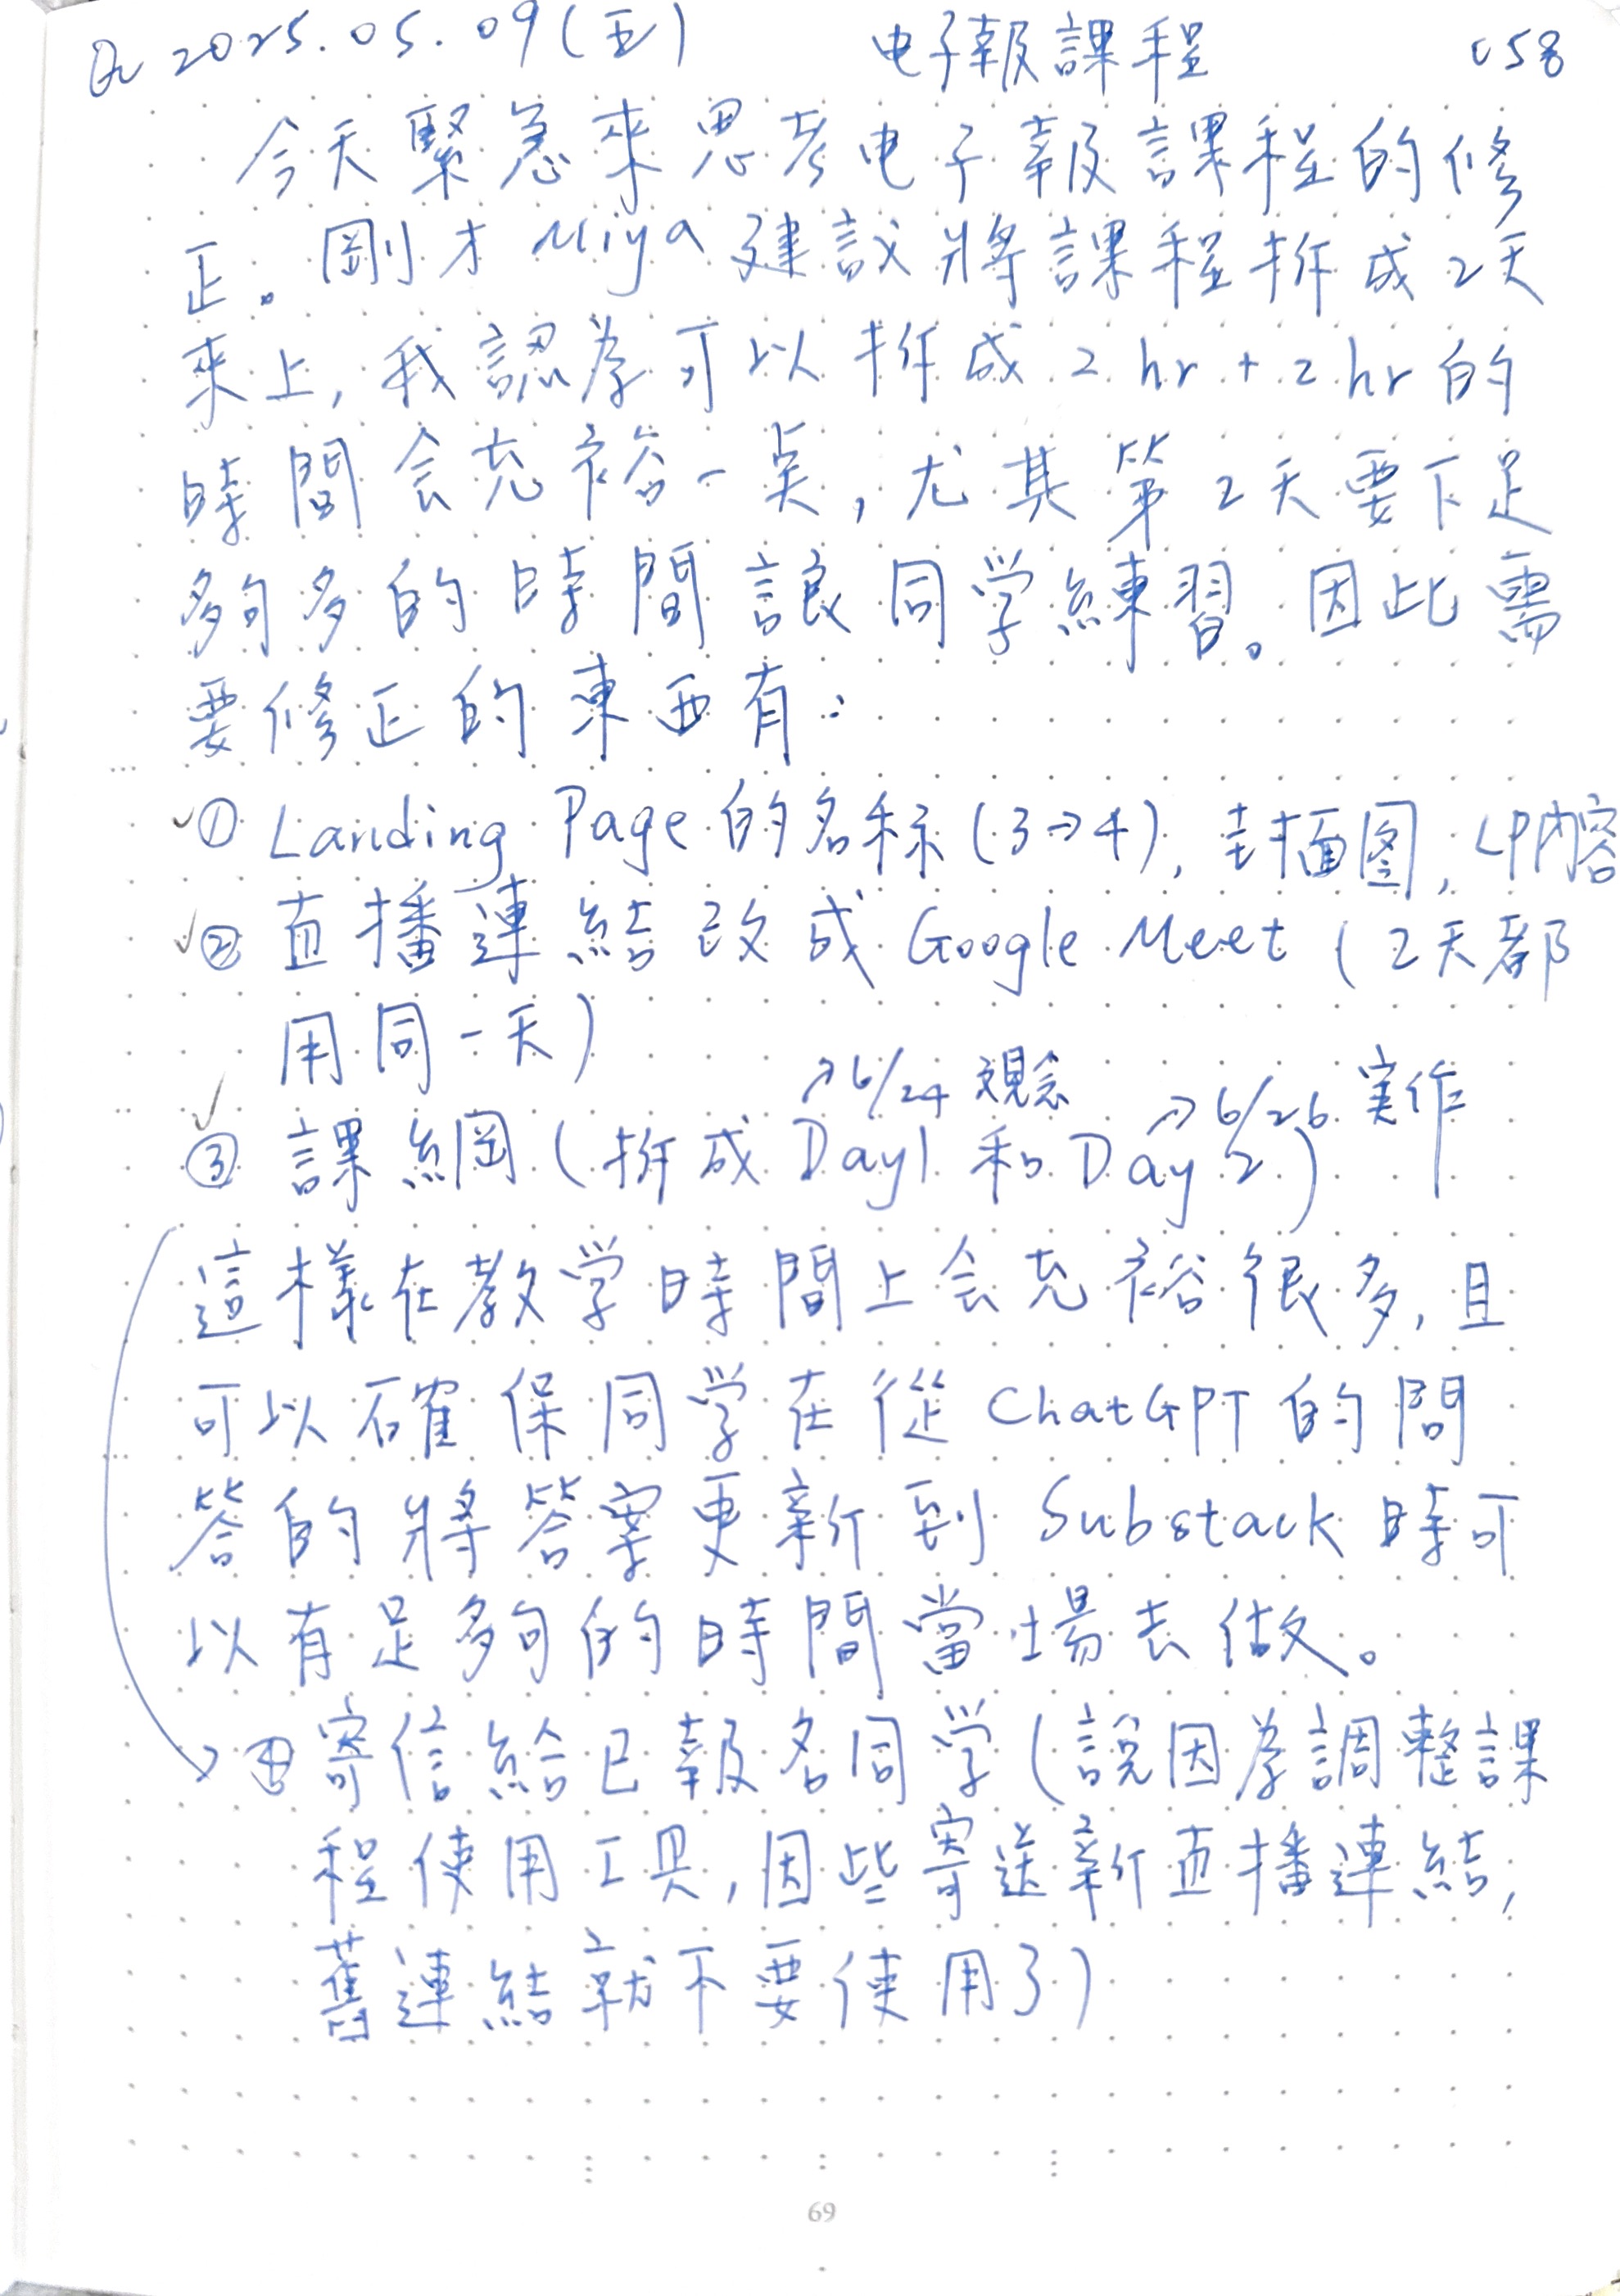 2025.05.09(五) 电子報課程 058
今天緊急來思考电子報課程的修
正。剛才 Miya 建議將課程拆成2天
來上,我認為可以拆成 2 hr + 2 hr 的
時間会充裕一点,尤其第2天要下足
夠多的時間讓同学練習。因此需
要修正的東西有:
✓① Landing Page 的名称(3→4),封面图,LP內容
✓② 直播連結改成 Google Meet (2天都
用同一天)
↗6/24 观念 ↗6/26 実作
✓③ 課綱(拆成 Day1 和 Day 2)
這樣在教学時間上会充裕很多,且
可以確保同学在從 ChatGPT 的問
答的將答案更新到 Substack 時可
以有足夠的時間當場去做。
→④寄信給已報名同学(說因為調整課
程使用工具,因些寄送新直播連結,
舊連結就不要使用了)
69